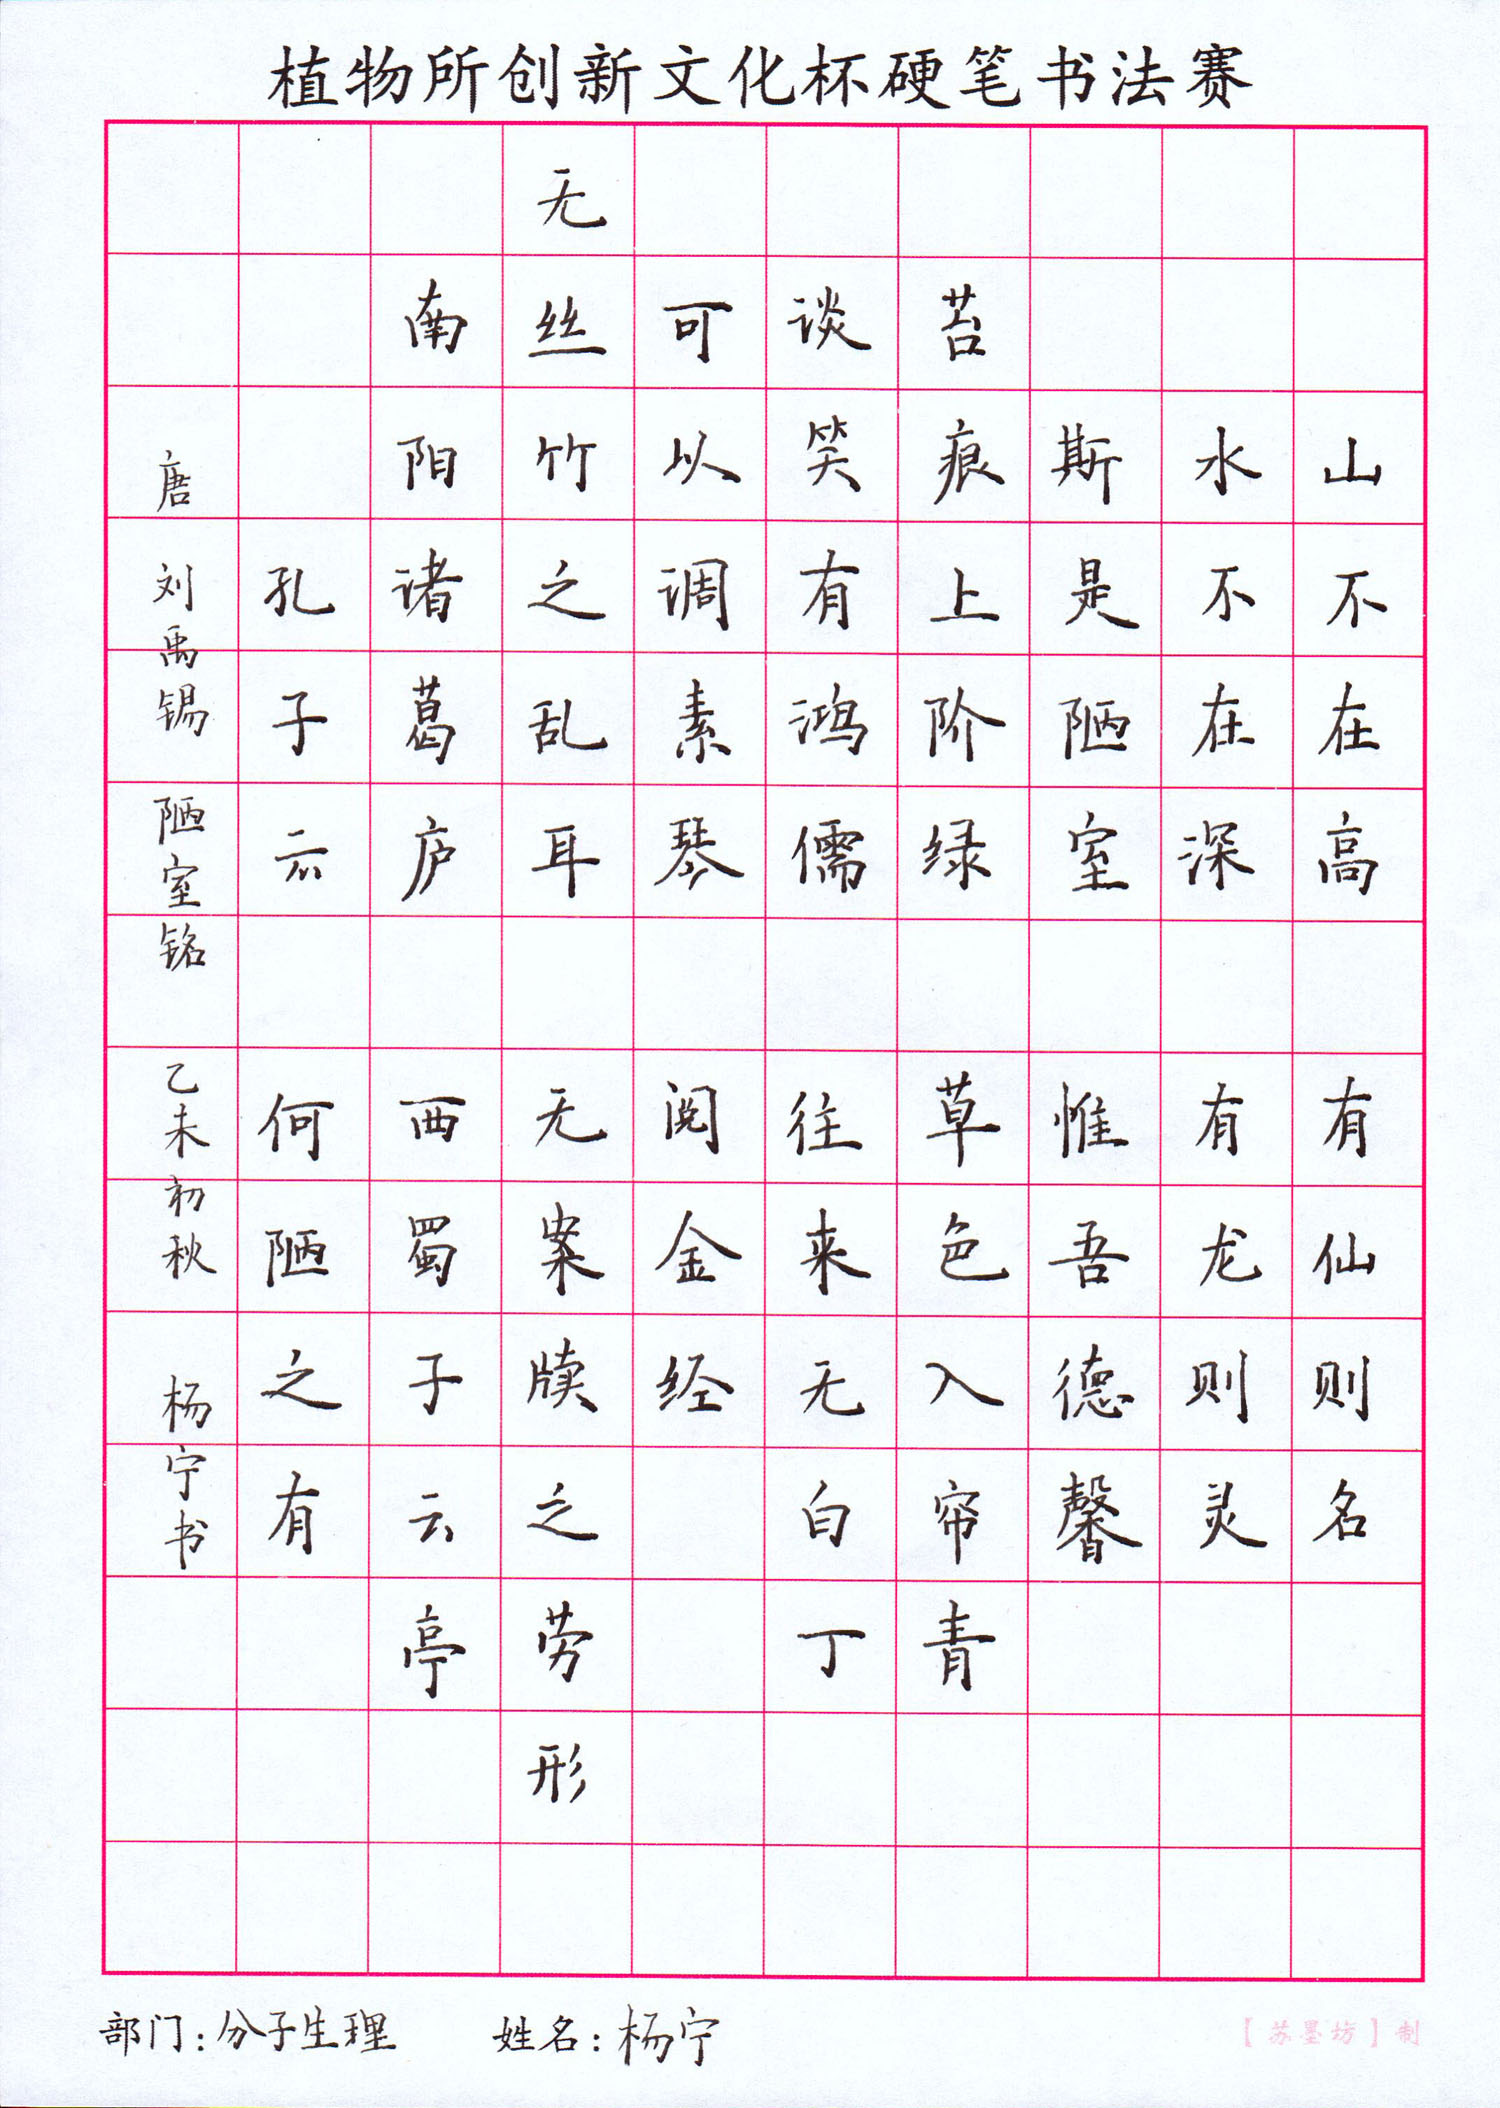 植物所创新文化杯硬笔书法赛
山不在高
有仙则名
水不在深
有龙则灵
斯是陋室
惟吾德馨
苔痕上阶绿
草色入帘青
谈笑有鸿儒
往来无白丁
可以调素琴
阅金经
无丝竹之乱耳
无案牍之劳形
南阳诸葛庐
西蜀子云亭
孔子云
何陋之有
唐 刘禹锡 陋室铭 乙未初秋 杨宁书
部门：分子生理 姓名：杨宁
【苏墨坊】制